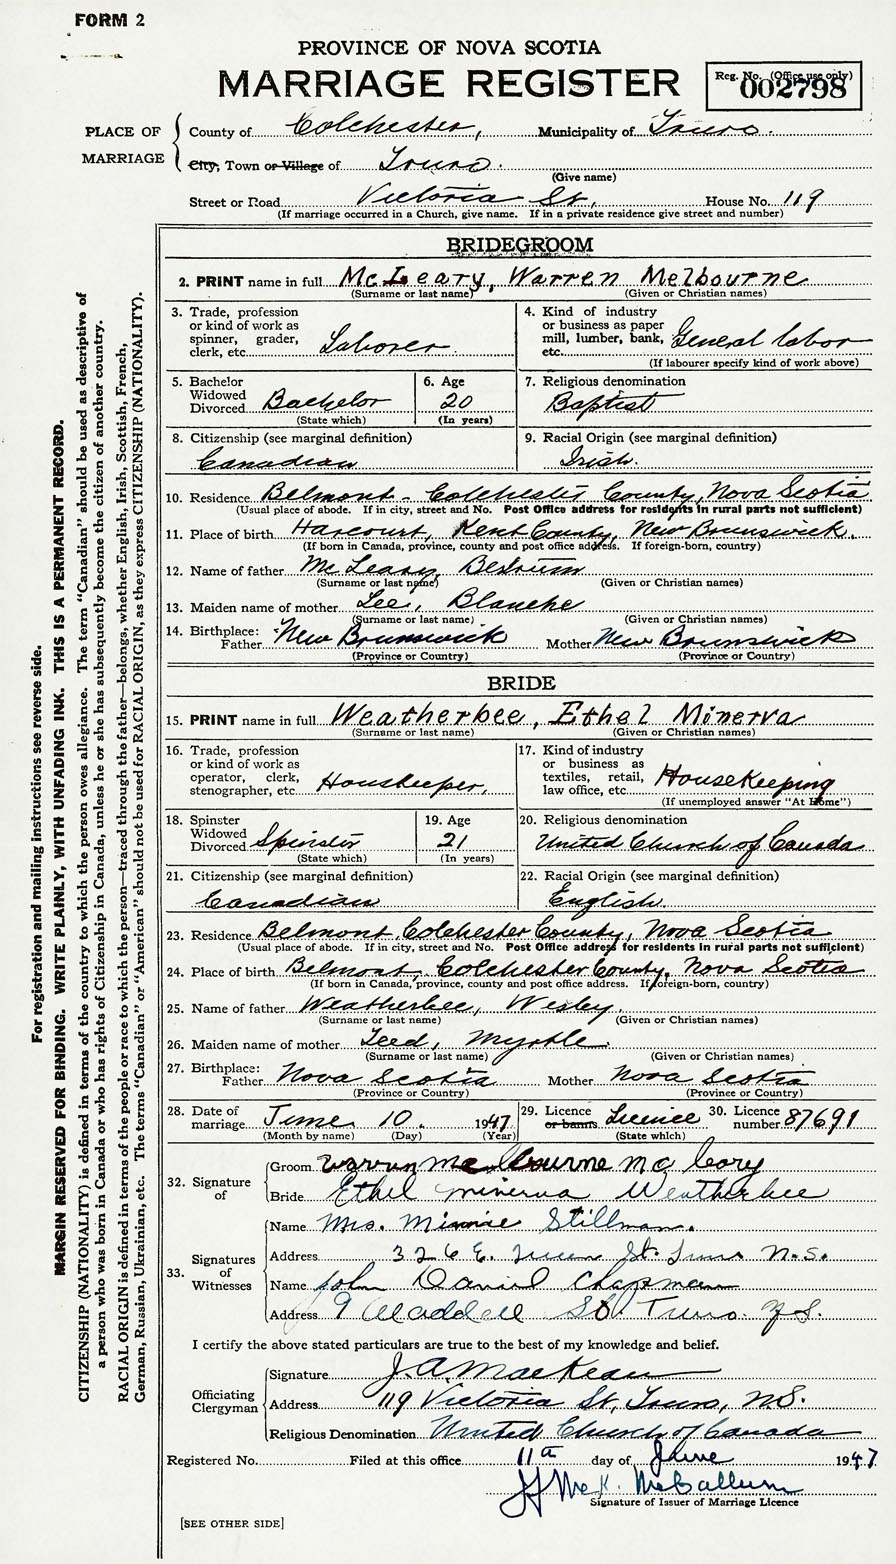 FORM 2
PROVINCE OF NOVA SCOTIA
MARRIAGE REGISTER
Reg. No. (Office use only)
002798
PLACE OF MARRIAGE
County of Colchester, Municipality of Truro.
City, Town or Village of Truro.
(Give name)
Street or Road Victoria St, House No. 119
(If marriage occurred in a Church, give name. If in a private residence give street and number)
BRIDEGROOM
2. PRINT name in full McLeary, Warren Melbourne
(Surname or last name) (Given or Christian names)
3. Trade, profession or kind of work as spinner, grader, clerk, etc. Laborer.
4. Kind of industry or business as paper mill, lumber, bank, etc. General labor
(If labourer specify kind of work above)
5. Bachelor Widowed Divorced Bachelor
(State which)
6. Age 20
(In years)
7. Religious denomination
Baptist
8. Citizenship (see marginal definition)
Canadian
9. Racial Origin (see marginal definition)
Irish.
10. Residence Belmont - Colchester County, Nova Scotia
(Usual place of abode. If in city, street and No. Post Office address for residents in rural parts not sufficient)
11. Place of birth Harcourt, Kent County, New Brunswick.
(If born in Canada, province, county and post office address. If foreign-born, country)
12. Name of father McLeary,
(Surname or last name) (Given or Christian names)
13. Maiden name of mother Lee, Blanche
(Surname or last name) (Given or Christian names)
14. Birthplace: Father New Brunswick Mother New Brunswick
(Province or Country) (Province or Country)
BRIDE
15. PRINT name in full Weatherbee, Ethel Minerva
(Surname or last name) (Given or Christian names)
16. Trade, profession or kind of work as operator, clerk, stenographer, etc. Houskeeper,
17. Kind of industry or business as textiles, retail, law office, etc. HouseKeeping
(If unemployed answer "At Home")
18. Spinster Widowed Divorced Spinster
(State which)
19. Age 21
(In years)
20. Religious denomination
United Church of Canada
21. Citizenship (see marginal definition)
Canadian
22. Racial Origin (see marginal definition)
English.
23. Residence Belmont, Colchester County, Nova Scotia
(Usual place of abode. If in city, street and No. Post Office address for residents in rural parts not sufficient)
24. Place of birth Belmont, Colchester County, Nova Scotia
(If born in Canada, province, county and post office address. If foreign-born, country)
25. Name of father Weatherbee, Wesley.
(Surname or last name) (Given or Christian names)
26. Maiden name of mother Teed, Myrtle.
(Surname or last name) (Given or Christian names)
27. Birthplace: Father Nova Scotia Mother Nova Scotia
(Province or Country) (Province or Country)
28. Date of marriage June 10. 1947
(Month by name) (Day) (Year)
29. Licence or banns Licence
(State which)
30. Licence number 87691
32. Signature of
Groom Warren Melbourne McLeary
Bride Ethel Minerva Weatherbee
33. Signatures of Witnesses
Name Mrs. Minnie Stillman.
Address 326 E. Queen St. Truro N.S.
Name John Daniel Chapman
Address 9 Waddell St. Truro. N.S.
I certify the above stated particulars are true to the best of my knowledge and belief.
Officiating Clergyman
Signature J. A. MacKean
Address 119 Victoria St, Truro, N.S.
Religious Denomination United Church of Canada
Registered No. Filed at this office 11th day of June 1947
McK. McCallum
Signature of Issuer of Marriage Licence
[SEE OTHER SIDE]
For registration and mailing instructions see reverse side.
MARGIN RESERVED FOR BINDING. WRITE PLAINLY, WITH UNFADING INK. THIS IS A PERMANENT RECORD.
CITIZENSHIP (NATIONALITY) is defined in terms of the country to which the person owes allegiance. The term "Canadian" should be used as descriptive of
a person who was born in Canada or who has rights of Citizenship in Canada, unless he or she has subsequently become the citizen of another country.
RACIAL ORIGIN is defined in terms of the people or race to which the person—traced through the father—belongs, whether English, Irish, Scottish, French,
German, Russian, Ukrainian, etc. The terms "Canadian" or "American" should not be used for RACIAL ORIGIN, as they express CITIZENSHIP (NATIONALITY).